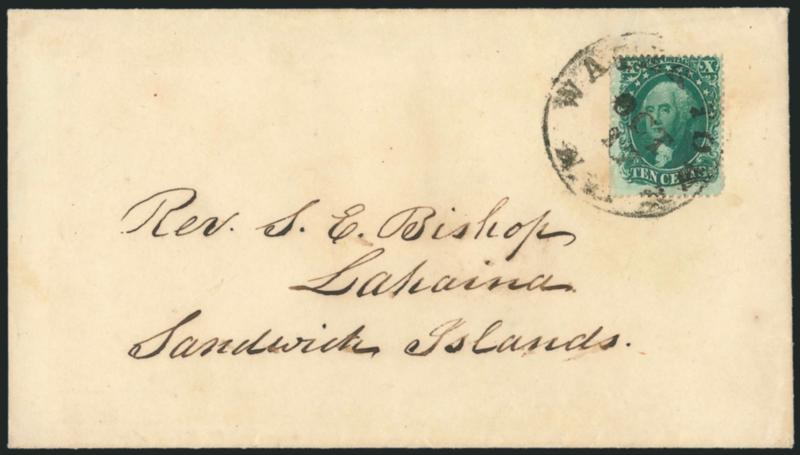 X X
OCT
TEN CENTS
Rev. S. E. Bishop
Lahaina
Sandwich Islands.